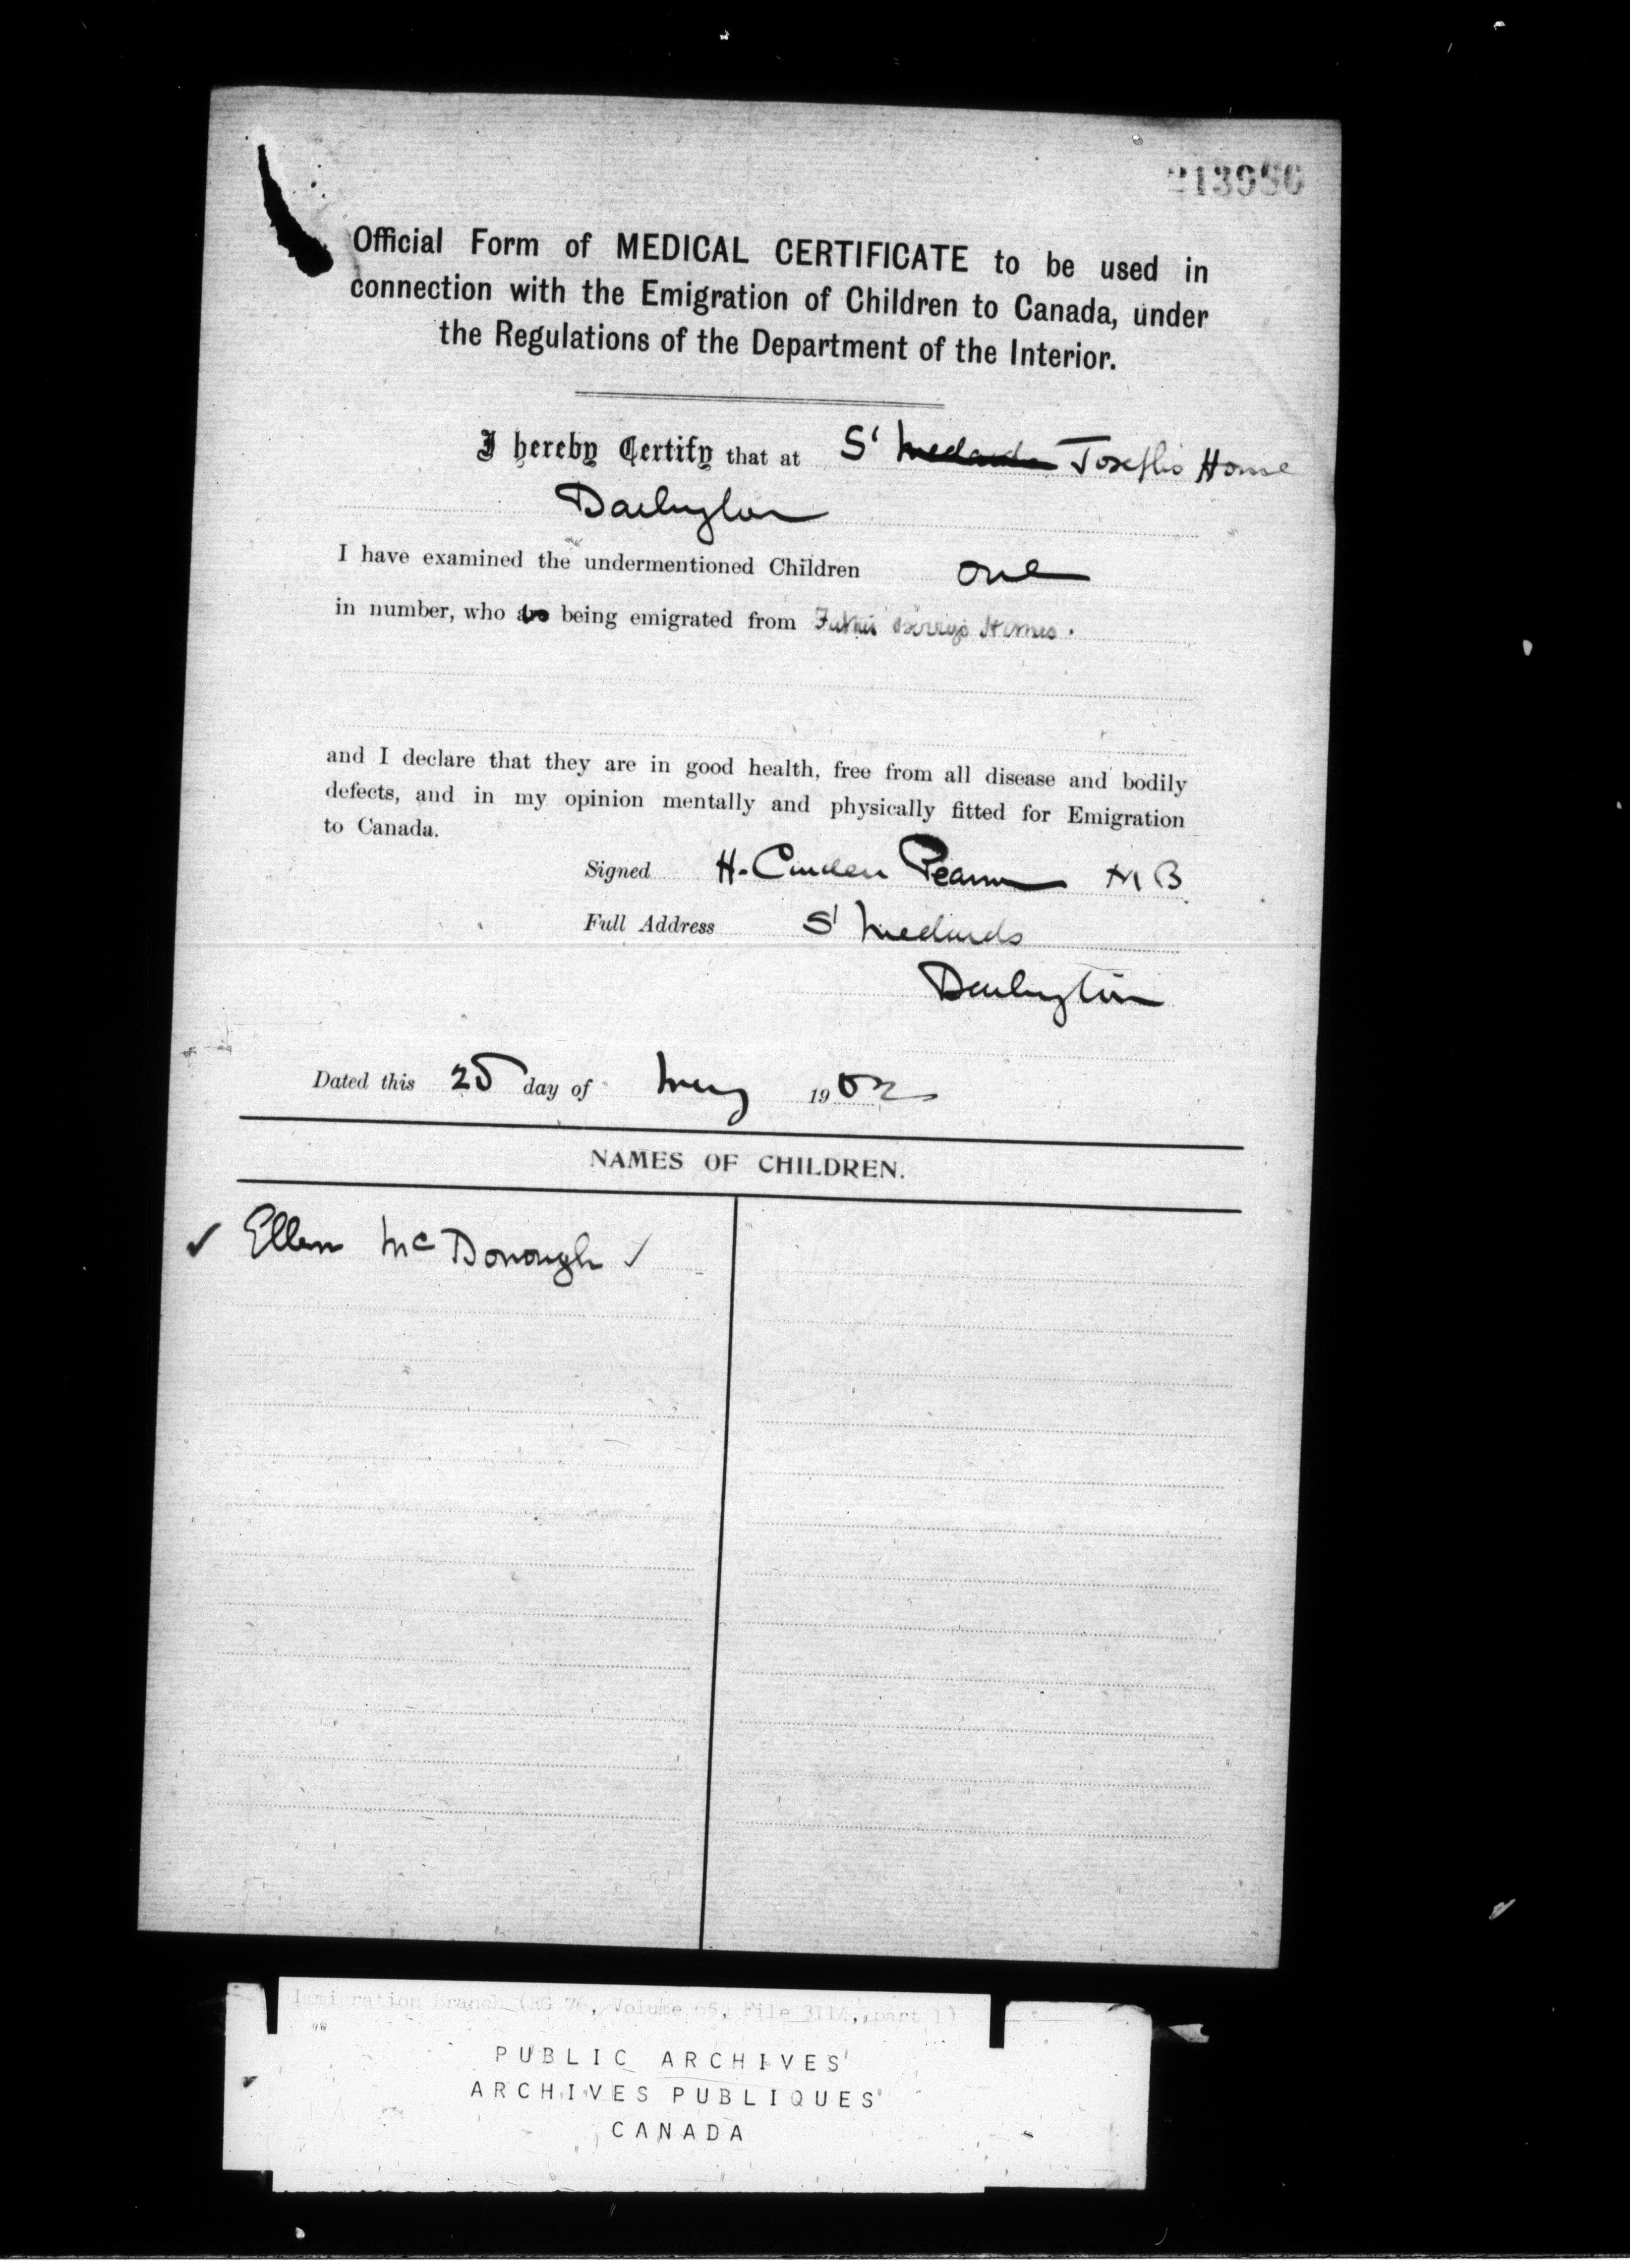 213986
Official Form of MEDICAL CERTIFICATE to be used in
connection with the Emigration of Children to Canada, under
the Regulations of the Department of the Interior.
I hereby Certify that at St Joseph's Home
Darlington
I have examined the undermentioned Children one
in number, who being emigrated from Father Berry's Homes.
and I declare that they are in good health, free from all disease and bodily
defects, and in my opinion mentally and physically fitted for Emigration
to Canada.
Signed H. Pearson MB
Full Address St Medards
Darlington
Dated this 25 day of May 1902
NAMES OF CHILDREN.
✓ Ellen McDonough ✓
Immigration branch (RG 76, Volume 65, File 3114, part 1)
PUBLIC ARCHIVES
ARCHIVES PUBLIQUES
CANADA